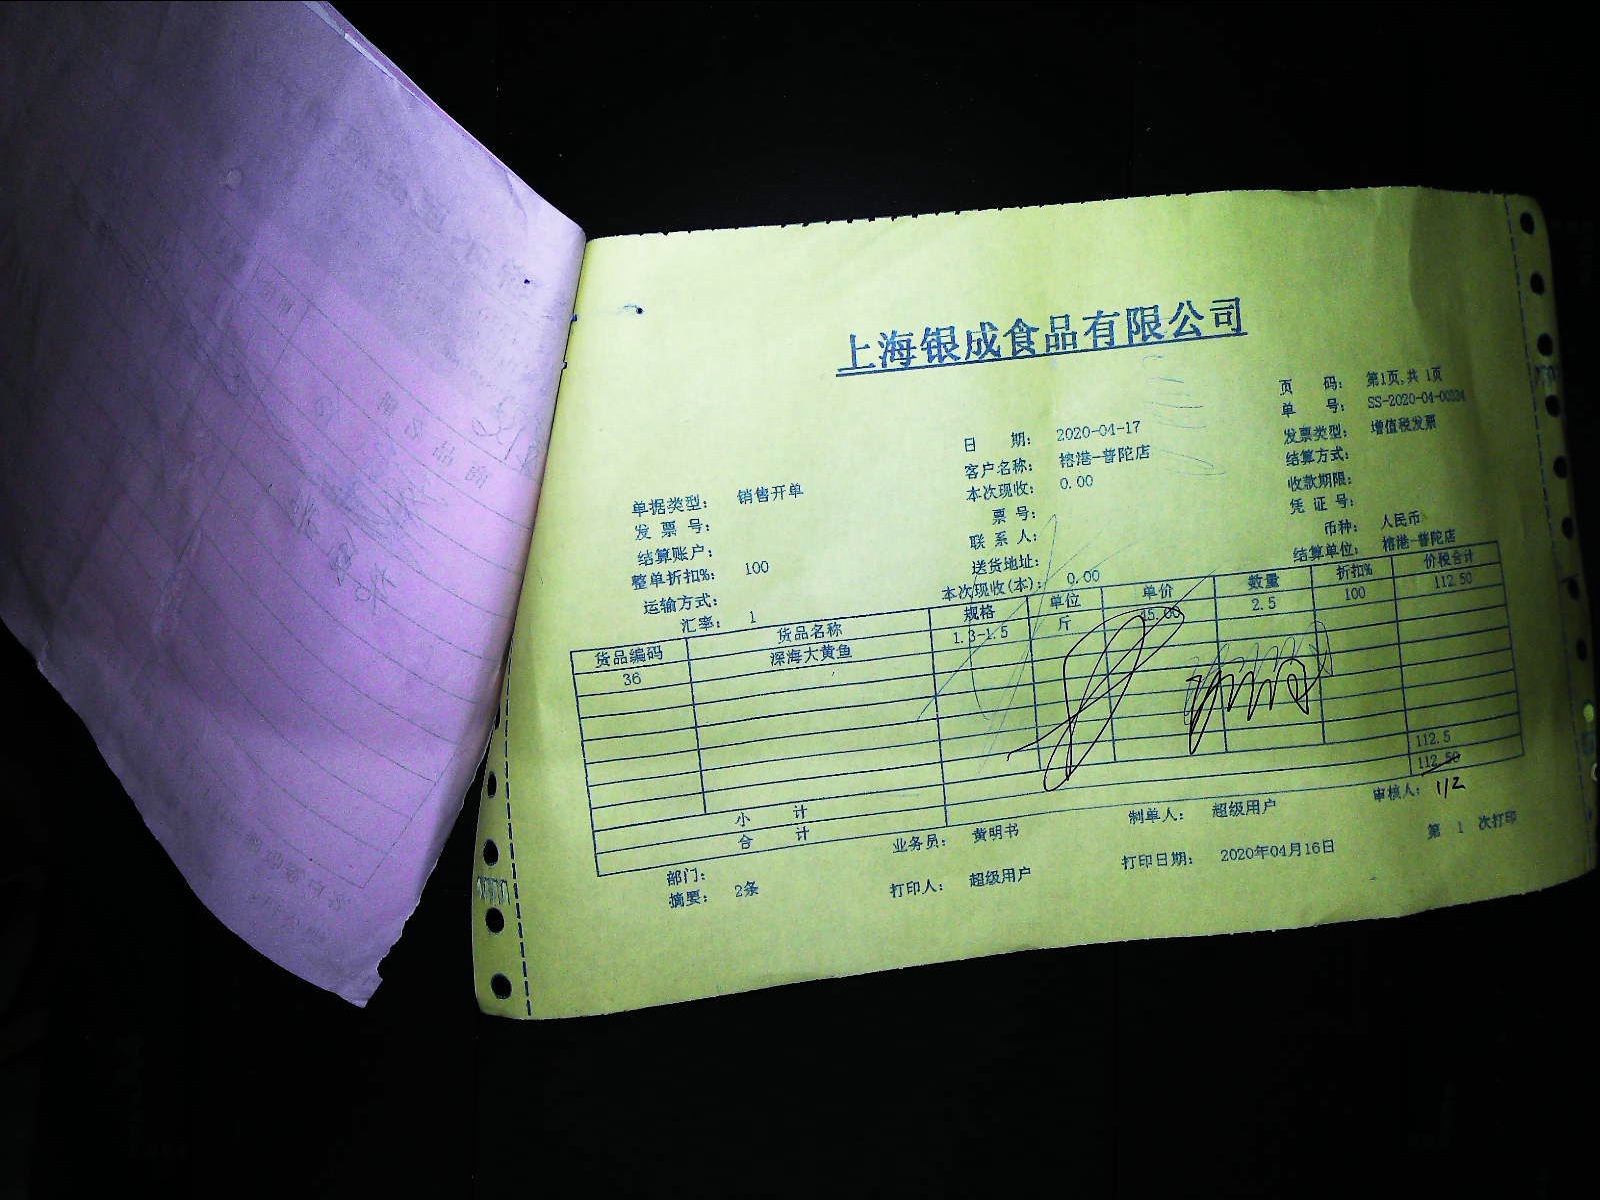 上海银成食品有限公司
页 码: 第1页,共 1页
单 号: SS-2020-04-00334
日 期: 2020-04-17
发票类型: 增值税发票
单据类型: 销售开单
客户名称: 榕港-普陀店
结算方式:
发 票 号:
本次现收: 0.00
收款期限:
结算账户:
票 号:
凭 证 号:
整单折扣%: 100
联 系 人:
币种: 人民币
运输方式:
送货地址:
结算单位: 榕港-普陀店
汇率: 1
本次现收(本): 0.00
货品编码 货品名称 规格 单位 单价 数量 折扣% 价税合计
36 深海大黄鱼 1.3-1.5 斤 45.00 2.5 100 112.50
小 计 112.5
合 计 112.50
112
部门:
业务员: 黄明书
制单人: 超级用户
审核人:
摘要: 2条
打印人: 超级用户
打印日期: 2020年04月16日
第 1 次打印